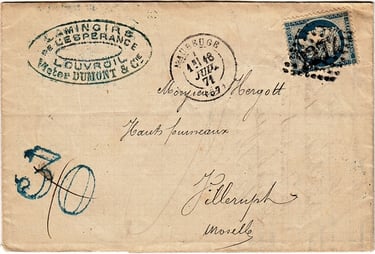 LAMINOIRS
DE L'ESPÉRANCE
LOUVROIL
Victor DUMONT & Cie
MAUBEUGE
18
JUIL.
71
(57)
30
Monsieur Hergott
Hauts fourneaux
Villerupt
Moselle